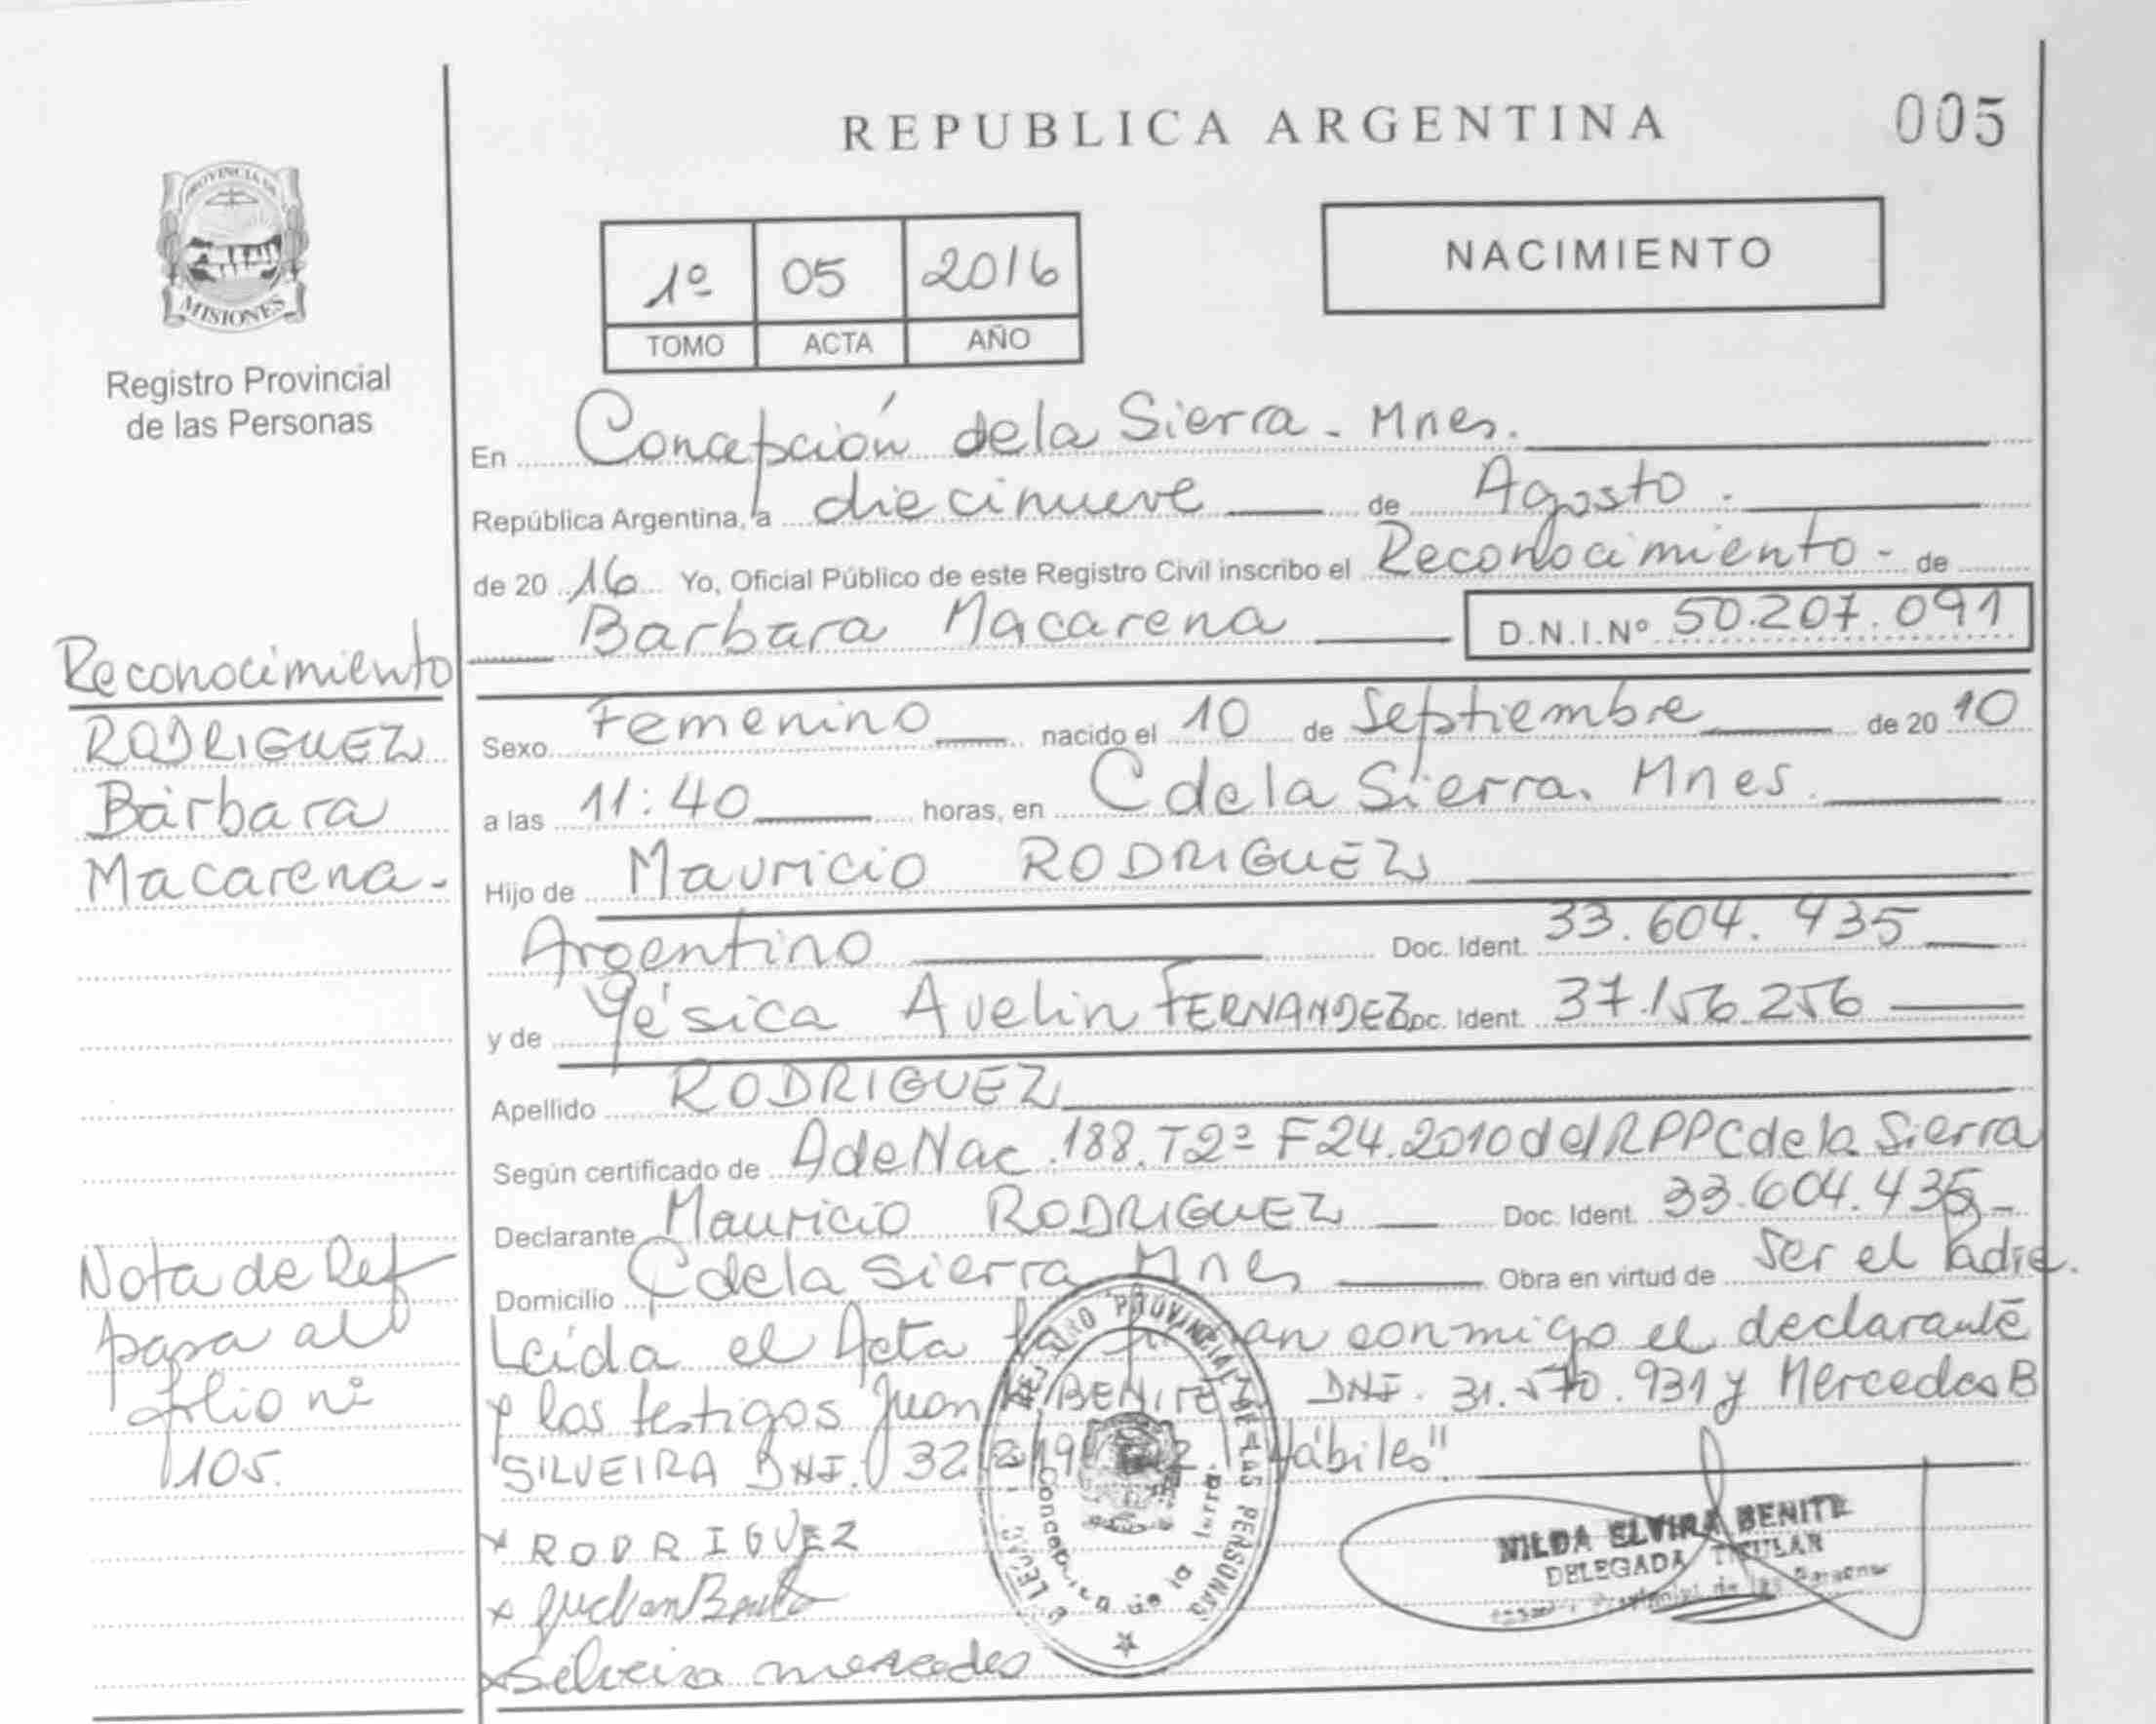 REPUBLICA ARGENTINA
005
PROVINCIA DE
MISIONES
Registro Provincial
de las Personas
1º 05 2016
TOMO ACTA AÑO
NACIMIENTO
En Concepción dela Sierra - Mnes.
República Argentina, a diecinueve de Agosto.
de 20 16 Yo, Oficial Público de este Registro Civil inscribo el Reconocimiento - de
Barbara Macarena D.N.I.Nº 50.207.091
Reconocimiento
RODRIGUEZ
Bárbara
Macarena.-
Sexo Femenino nacido el 10 de Septiembre de 20 10
a las 11:40 horas, en C dela Sierra. Mnes.
Hijo de Mauricio RODRIGUEZ
Argentino Doc. Ident. 33.604.435
y de Yésica Avelin FERNANDEZ Doc. Ident. 37.156.256
Apellido RODRIGUEZ
Según certificado de AdeNac.188.T2º F24.2010 del RPP C de la Sierra
Declarante Mauricio RODRIGUEZ Doc. Ident. 33.604.435-
Domicilio C dela Sierra Mnes Obra en virtud de Ser el Padre.
Nota de Ref
papa al
folio nº
105.
Leída el Acta conmigo el declarante
y los testigos Juan BENITE DNI. 31.570.931 y Mercedes B
SILVEIRA DNI. 32. Hábiles".
REGISTRO PROVINCIAL DE LAS PERSONAS
Concepcion de la Sierra
x RODRIGUEZ
x
x Silveira mercedes
NILDA ELVIRA BENITE
DELEGADA TITULAR